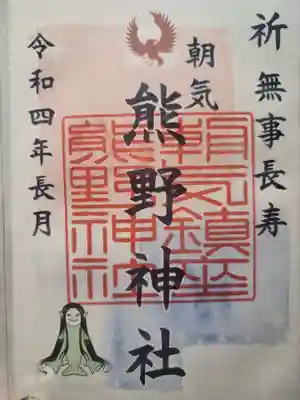 祈無事長寿
朝気
熊野神社
朝気鎮座
熊野神社
令和四年長月